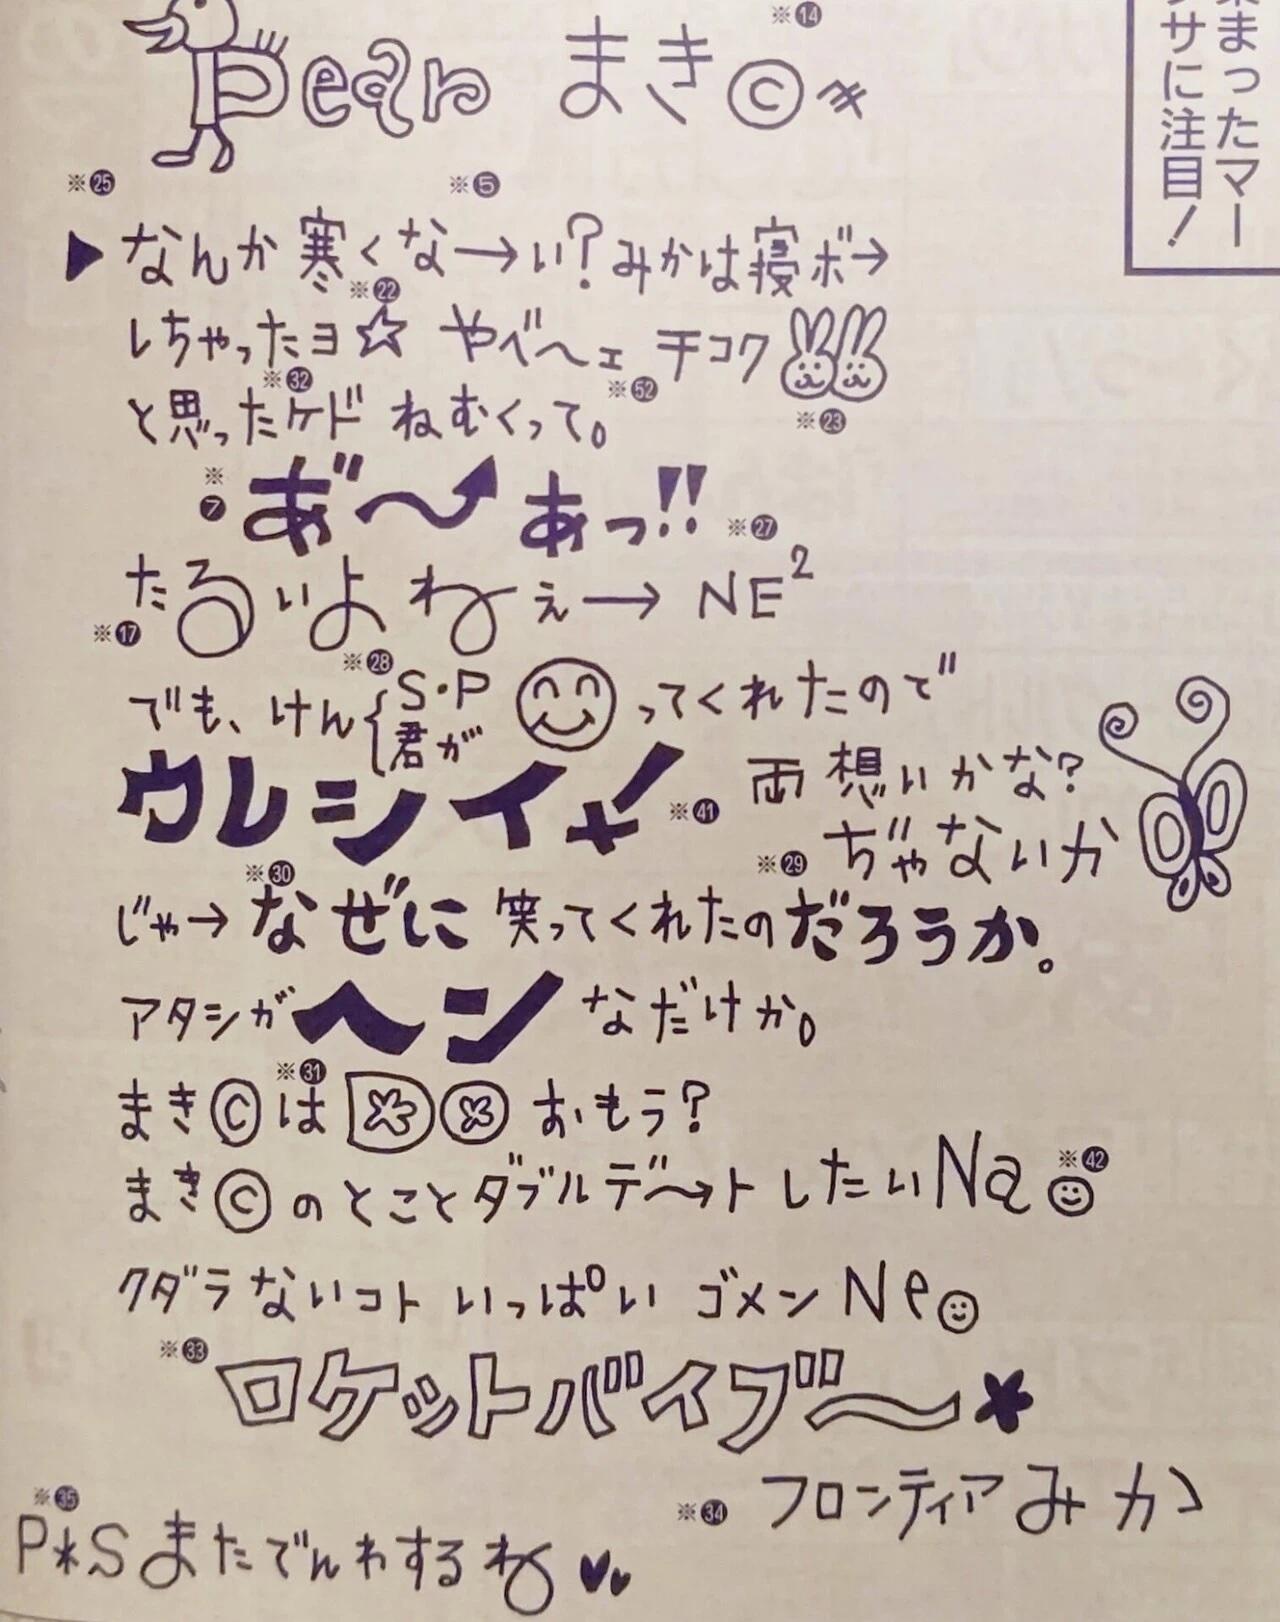 Pear まき© ※14
まったマー
サに注目！
※25 ※5
▶なんか寒くな→い？みかは寝ボ→
※22
しちゃったヨ☆ やべ〜ェ チコク
※32 ※52 ※23
と思ったケド ねむくって。
※7 あ゛〜あっ!! ※27
たるいよねぇ→ NE²
※17 ※28
でも、けん{S・P 君が ってくれたので
ウレシイ! ※41 両想いかな？
※29 ぢゃないか
※30
じゃ→なぜに笑ってくれたのだろうか。
アタシがヘンなだけか。
※31
まき©は おもう？
まき©のとことダブルデ〜トしたいNa ※42
クダラないコト いっぱい ゴメンNe
※33 ロケットバイブ〜
※34 フロンティアみか
※35
P*Sまたでんわするね